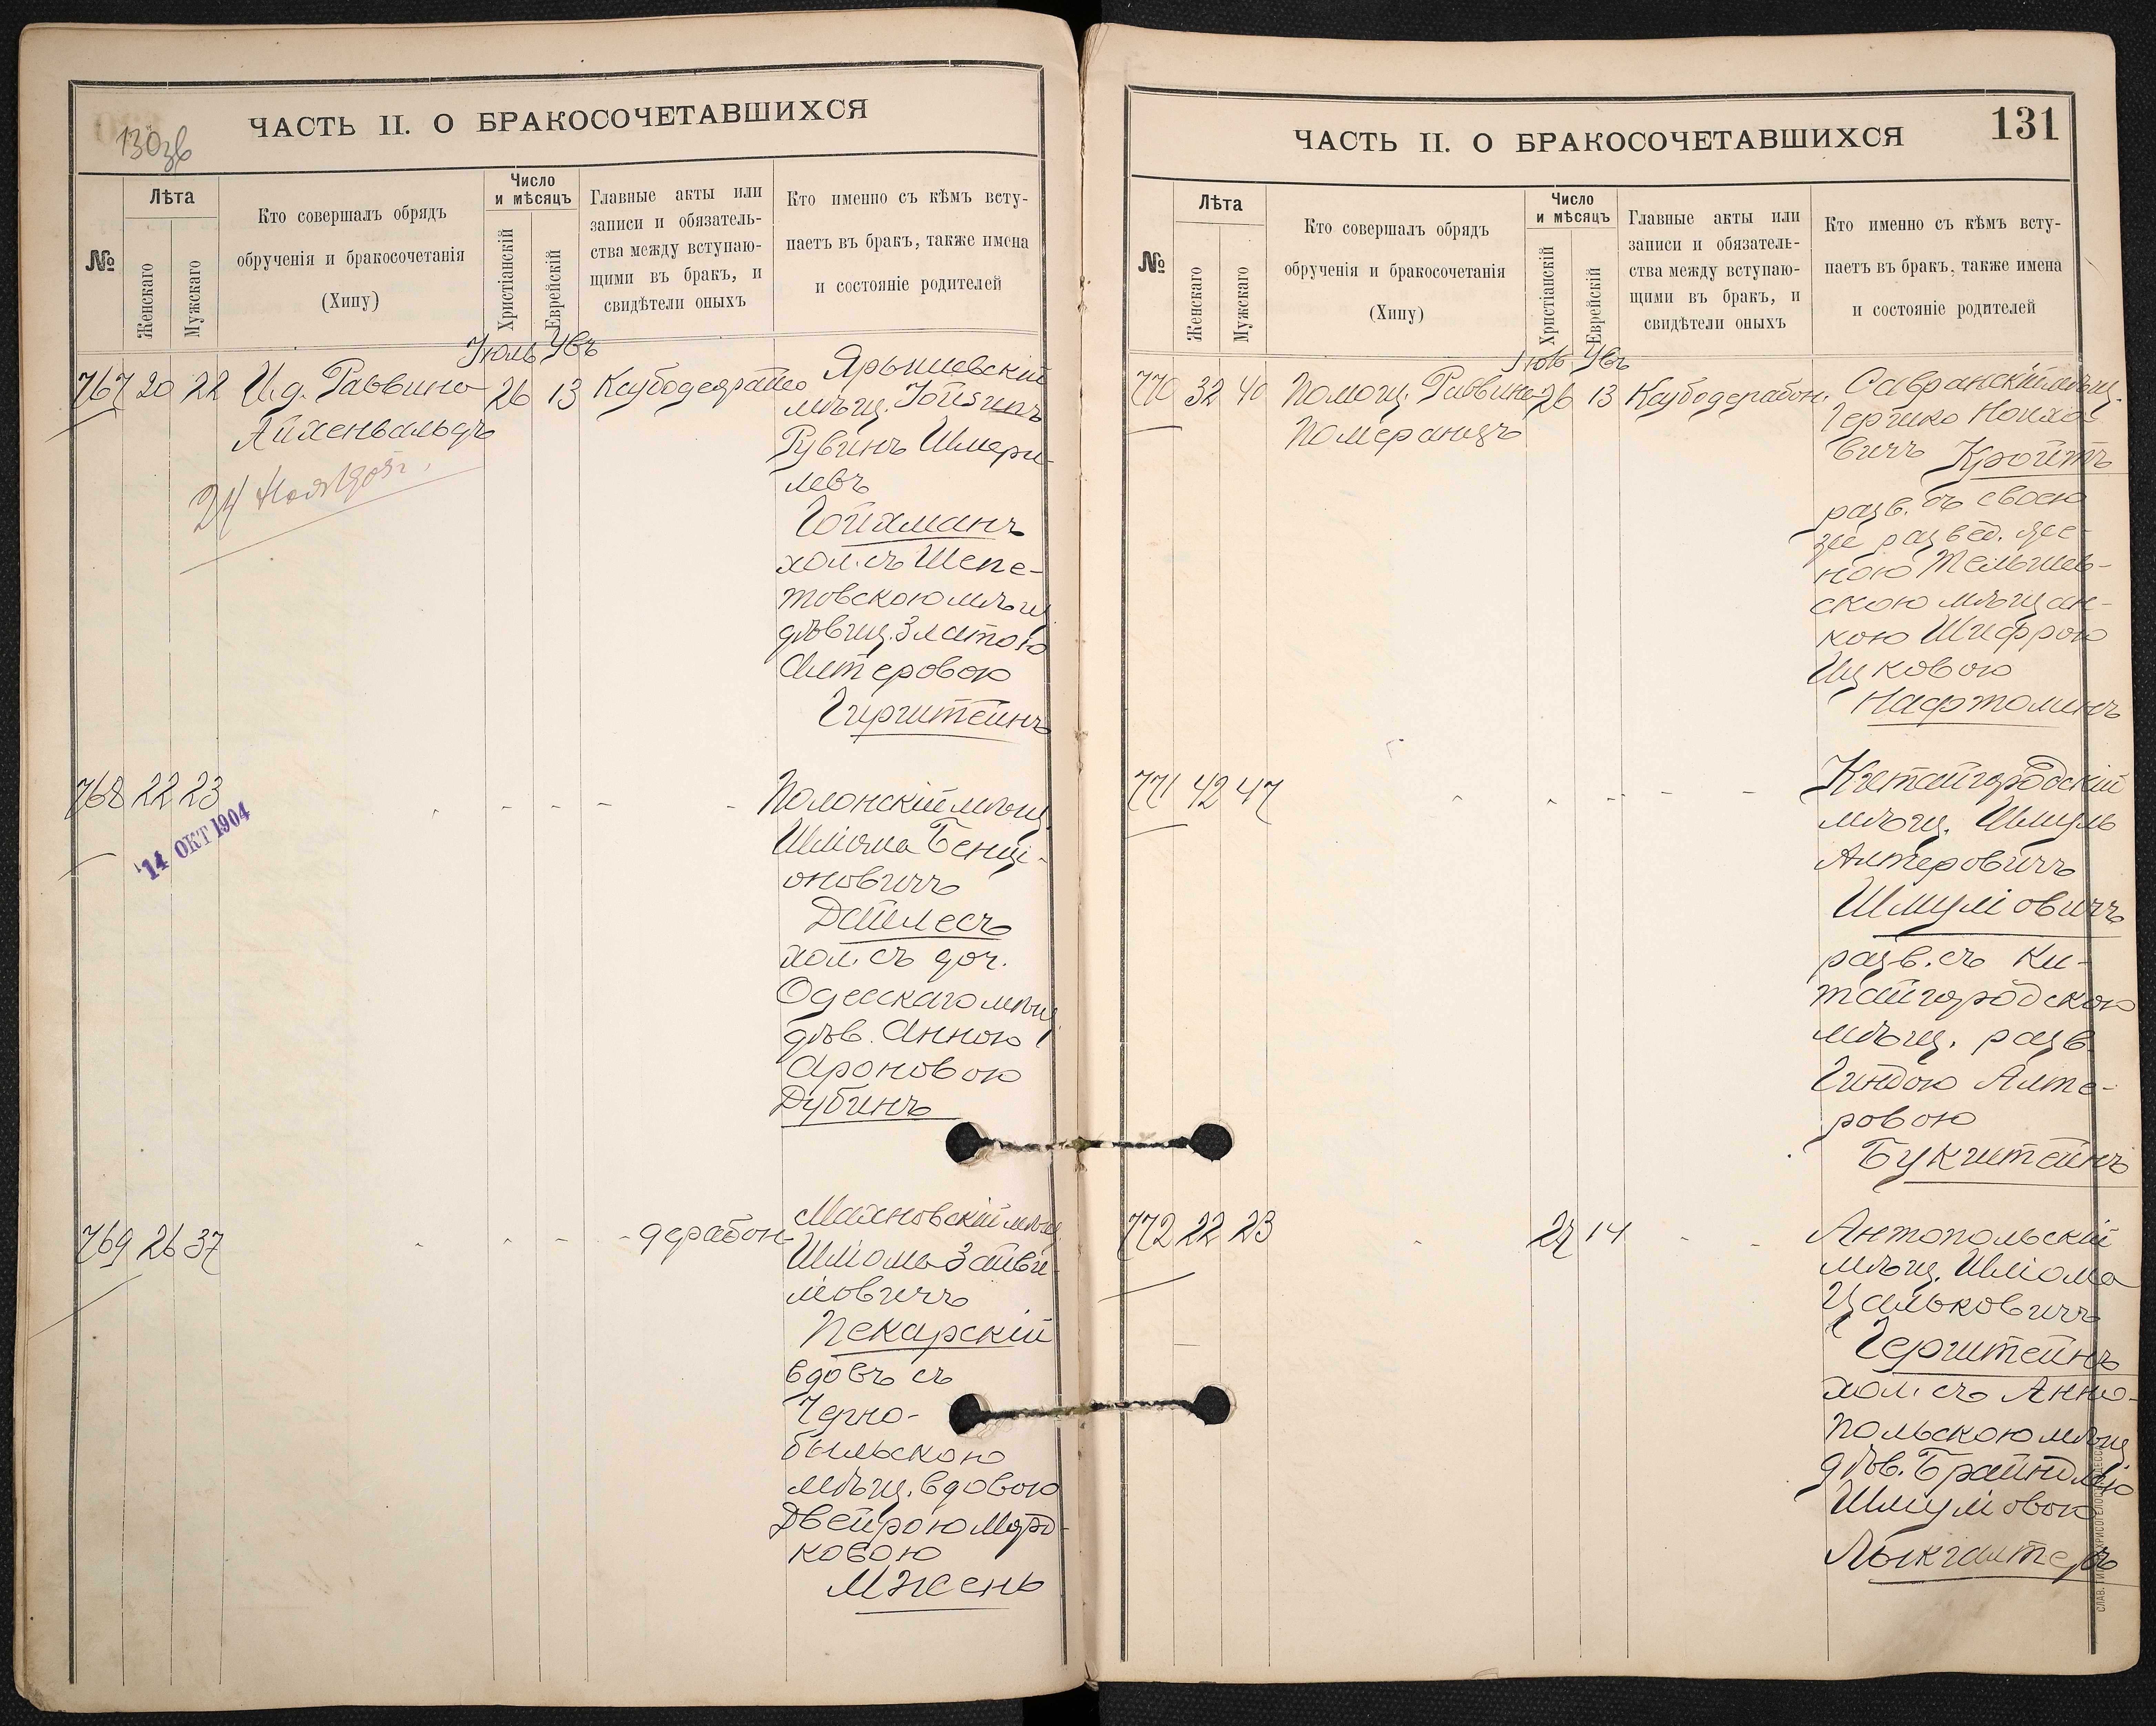 130 зв
ЧАСТЬ II. О БРАКОСОЧЕТАВШИХСЯ
№
Лѣта
Женскаго
Мужскаго
Кто совершалъ обрядъ
обрученія и бракосочетанія
(Хипу)
Число
и мѣсяцъ
Христіанскій
Еврейскій
Главные акты или
записи и обязатель-
ства между вступаю-
щими въ бракъ, и
свидѣтели оныхъ
Кто именно съ кѣмъ всту-
паетъ въ бракъ, также имена
и состояніе родителей
Іюль
767 20 22 И.д. Раввина 26 13
Айхенвальдъ
24 Ноя 1905 г.
Ярышевскій
мѣщ.
Рувинъ Шмери-
левъ
Гойхманъ
хол. съ Шепе-
товскою мѣщ
дѣвиц. Златою
Алтеровою
Гирштейнъ
768 22 23
14 ОКТ 1904
Полонскій мѣщ.
Шліома Бенці-
оновичъ
Дайлесъ
хол. съ доч.
Одесскаго мѣщ.
дѣв. Анною
Ароновою
Дубинъ
769 26 37
дерабон-
Махновскій мѣщ
Шліома Зайви-
ловичъ
Пекарскій
вдовъ съ
Черно-
быльскою
мѣщ. вдовою
Двейрою Морд-
ковою
Мжень
ЧАСТЬ II. О БРАКОСОЧЕТАВШИХСЯ
131
№
Лѣта
Женскаго
Мужскаго
Кто совершалъ обрядъ
обрученія и бракосочетанія
(Хипу)
Число
и мѣсяцъ
Христіанскій
Еврейскій
Главные акты или
записи и обязатель-
ства между вступаю-
щими въ бракъ, и
свидѣтели оныхъ
Кто именно съ кѣмъ всту-
паетъ въ бракъ, также имена
и состояніе родителей
770 32 40 Помощ. Раввина 26 13 Каубодерабон.
Померанцъ
Савранскій мѣщ.
Гершко
вичъ Кройтъ
разв. съ своею
же развед. же-
ною Тельшев-
скою мѣщан-
кою Шифрою
Ицковою
Нафтолинъ
771 42 47
Китайгородскій
мѣщ. Шмуль
Алтеровичъ
Шмуліовичъ
разв. съ Ки-
тайгородскою
мѣщ. разв.
Гиндою Алте-
ровою
Букштейнъ
772 22 23 27 14
Антопольскій
мѣщ. Шліома
Цальковичъ
Герштейнъ
хол. съ Анно-
польскою мѣщ
дѣв. Брайндлею
Шмуліовою